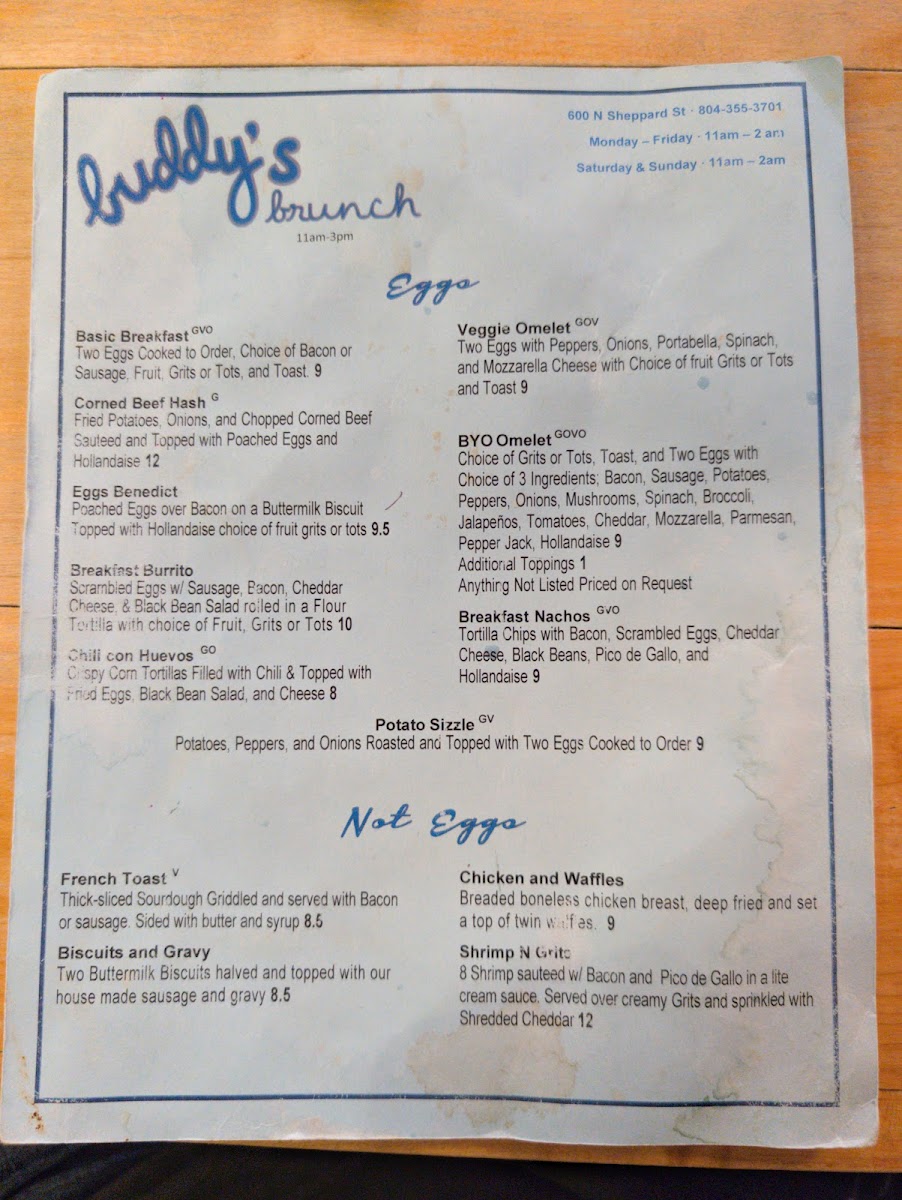 buddy's
brunch
11am-3pm
600 N Sheppard St · 804-355-3701
Monday – Friday · 11am – 2 am
Saturday & Sunday · 11am – 2am
Eggs
Basic Breakfast GVO
Two Eggs Cooked to Order, Choice of Bacon or
Sausage, Fruit, Grits or Tots, and Toast. 9
Corned Beef Hash G
Fried Potatoes, Onions, and Chopped Corned Beef
Sauteed and Topped with Poached Eggs and
Hollandaise 12
Eggs Benedict
Poached Eggs over Bacon on a Buttermilk Biscuit
Topped with Hollandaise choice of fruit grits or tots 9.5
Breakfast Burrito
Scrambled Eggs w/ Sausage, Bacon, Cheddar
Cheese, & Black Bean Salad rolled in a Flour
Tortilla with choice of Fruit, Grits or Tots 10
Chili con Huevos GO
Crispy Corn Tortillas Filled with Chili & Topped with
Fried Eggs, Black Bean Salad, and Cheese 8
Veggie Omelet GOV
Two Eggs with Peppers, Onions, Portabella, Spinach,
and Mozzarella Cheese with Choice of fruit Grits or Tots
and Toast 9
BYO Omelet GOVO
Choice of Grits or Tots, Toast, and Two Eggs with
Choice of 3 Ingredients; Bacon, Sausage, Potatoes,
Peppers, Onions, Mushrooms, Spinach, Broccoli,
Jalapeños, Tomatoes, Cheddar, Mozzarella, Parmesan,
Pepper Jack, Hollandaise 9
Additional Toppings 1
Anything Not Listed Priced on Request
Breakfast Nachos GVO
Tortilla Chips with Bacon, Scrambled Eggs, Cheddar
Cheese, Black Beans, Pico de Gallo, and
Hollandaise 9
Potato Sizzle GV
Potatoes, Peppers, and Onions Roasted and Topped with Two Eggs Cooked to Order 9
Not Eggs
French Toast V
Thick-sliced Sourdough Griddled and served with Bacon
or sausage. Sided with butter and syrup 8.5
Biscuits and Gravy
Two Buttermilk Biscuits halved and topped with our
house made sausage and gravy 8.5
Chicken and Waffles
Breaded boneless chicken breast, deep fried and set
a top of twin waffles. 9
Shrimp N Grits
8 Shrimp sauteed w/ Bacon and Pico de Gallo in a lite
cream sauce. Served over creamy Grits and sprinkled with
Shredded Cheddar 12